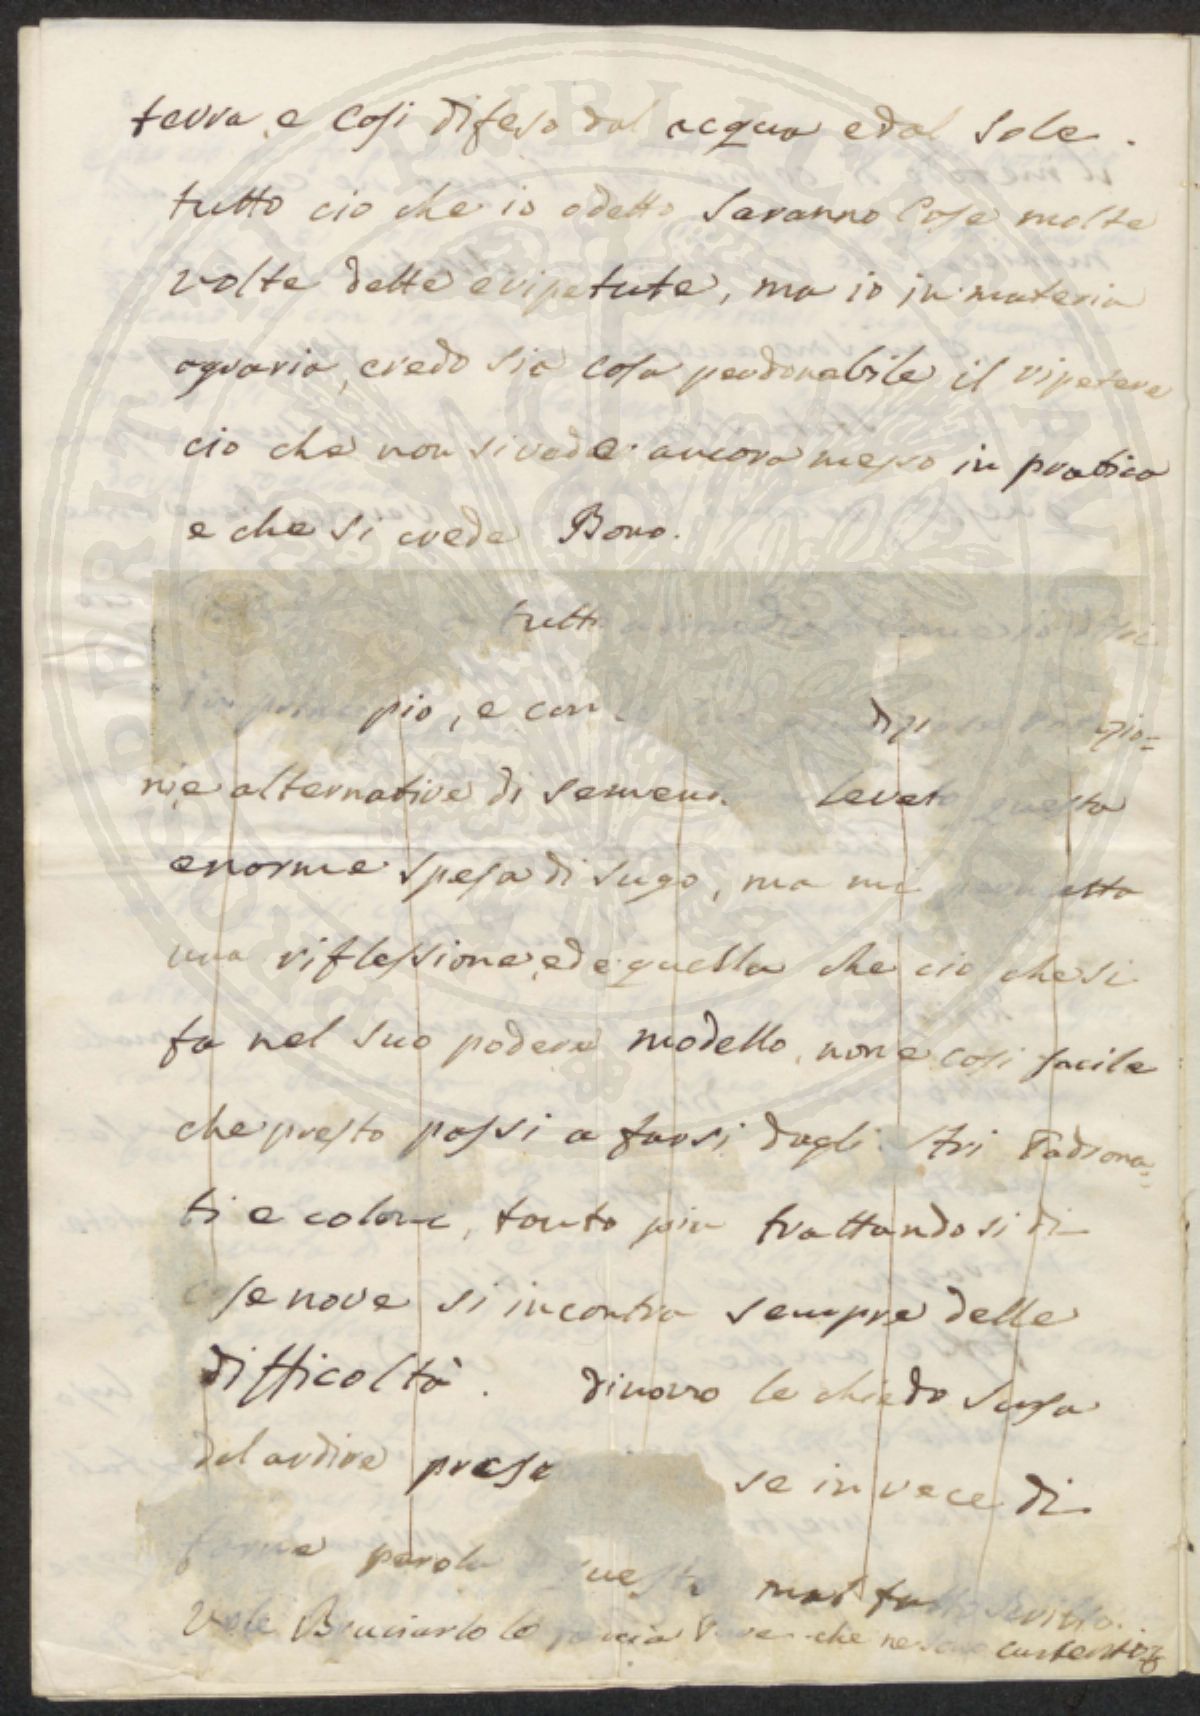 terra, e Cosi difeso dal acqua e dal sole.
tutto cio che io o detto saranno Cose molte
volte dette e ripetute, ma io in materia
agraria, credo sia cosa perdonabile il ripetere
cio che non si vede ancora messo in pratica
e che si crede Bono.
tutti
pio, e con
ni e alternative di semen levato questa
enorme spesa di sugo, ma mi
una riflessione, ed e quella che cio che si
fa nel suo podere modello, non e cosi facile
che presto possi a farsi dagli stri Fadsona=
ti e coloni, tanto piu trattandosi di
cose nove si incontra sempre delle
difficoltà. dinovo le chiedo scusa
del ardire preso se in vece di
farne parola questo mal fatto scritto
vole Bruciarlo lo faccia pure che ne sono